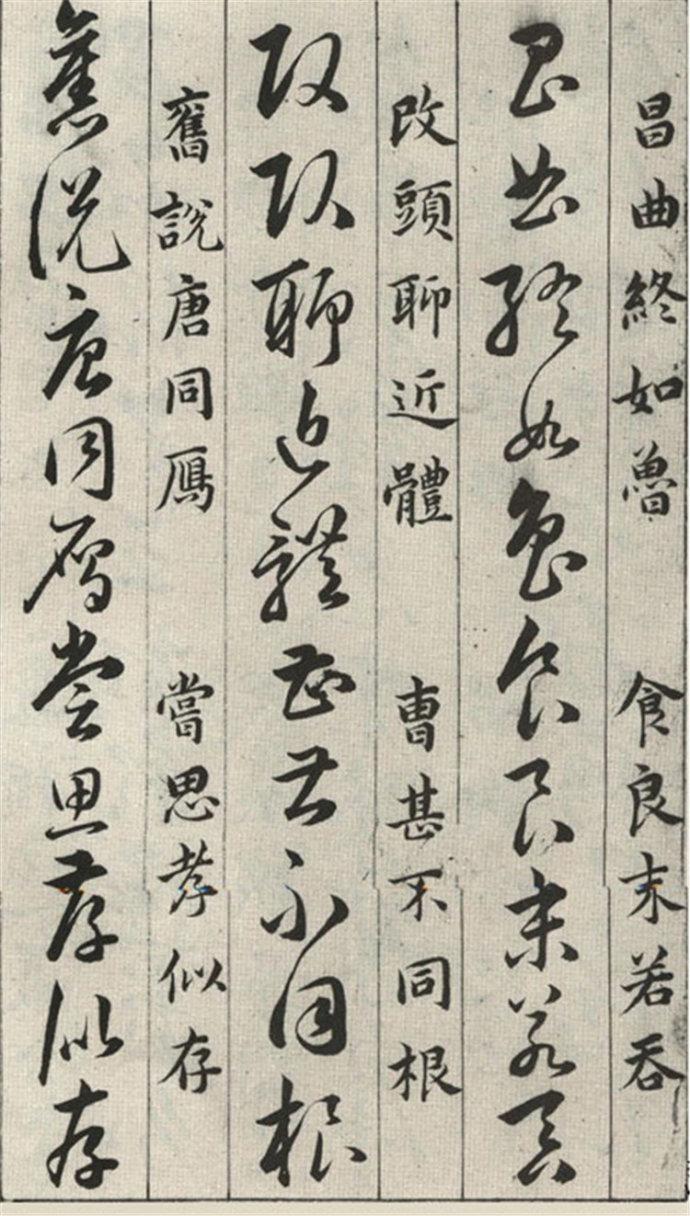 昌曲終如魯 食良末若吞
昌曲終如魯食良末若吞
改頭聊近體 曺甚不同根
改頭聊近體曺甚不同根
舊說唐同鴈 嘗思孝似存
舊說唐同鴈嘗思孝似存